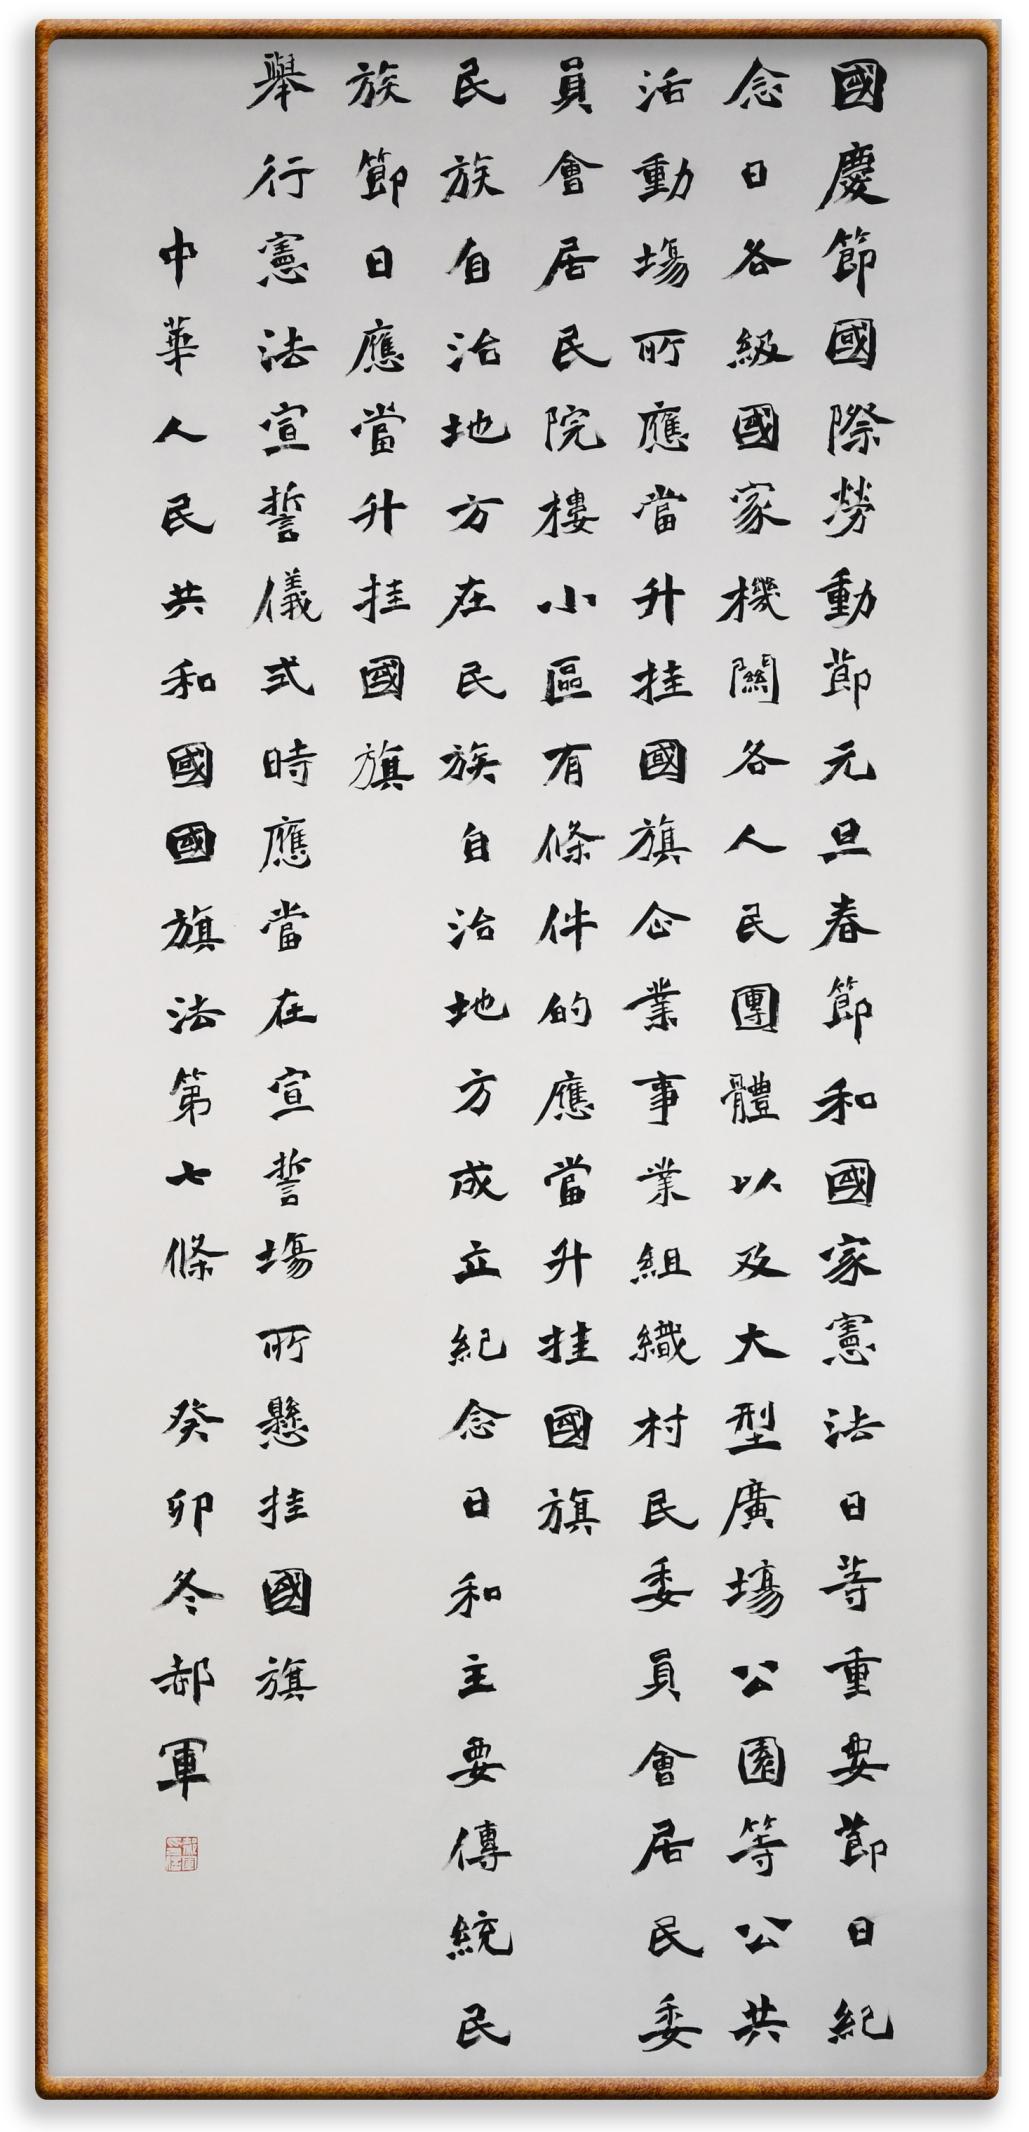 國慶節國際勞動節元旦春節和國家憲法日等重要節日紀
念日各級國家機關各人民團體以及大型廣場公園等公共
活動場所應當升挂國旗企業事業組織村民委員會居民委
員會居民院樓小區有條件的應當升挂國旗
民族自治地方在民族自治地方成立紀念日和主要傳統民
族節日應當升挂國旗
舉行憲法宣誓儀式時應當在宣誓場所懸挂國旗
中華人民共和國國旗法第七條 癸卯冬郝軍